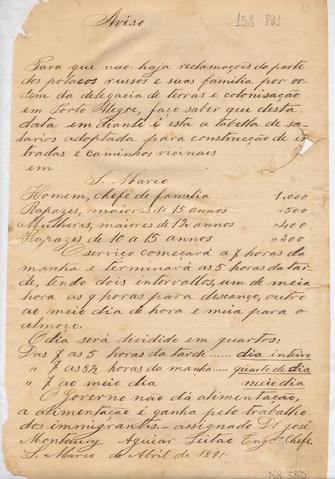 Aviso
132 831
Para que nao haja reclamações da parte
dos polacos russos e suas familia por or
dem da delegacia de terras e colonisação
em Porto Alegre, faço saber que desta
data em diante é esta a tabella de sa-
larios adoptada para construcção de es
tradas e caminhos vicinais
em
S. Marco
Homem, chefe de familia 1.000
Rapazes, maiores de 15 annos "500
Mulheres, maiores de 12 annos "400
Rapazes de 10 a 15 annos "300
O serviço começará a 7 horas da
manha e terminará as 5 horas da tar
de, tendo dois intervallos, um de meia
hora as 9 horas para descanço, outro
ao meio dia de hora e meia para o
almoço.
O dia será dividido em quartos:
Das 7 as 5 horas da tarde...... dia inteiro
" 7 as 8½ horas da manha..... quarto de dia
" 7 ao meio dia meio dia
O Governo não dá alimentação,
a alimentação é ganha pelo trabalho
dos immigrantis. - assignado Dr José
Montaury Aguiar Leitao Engro Chefe
S. Marco de Abril de 1891.